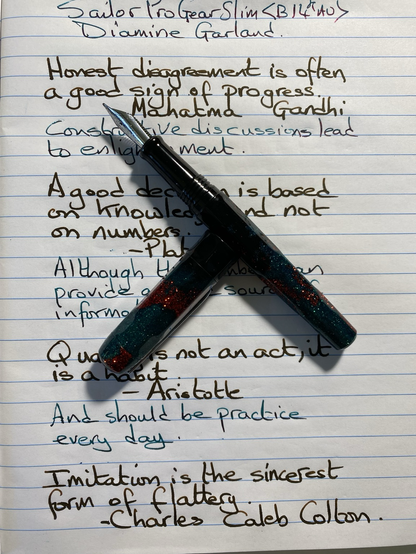 Sailor ProGear Slim <B 14K AU>
Diamine Garland.
Honest disagreement is often
a good sign of progress.
Mahatma Gandhi
ve discussions lead
to ment.
A good is based
on and not
on numbers.
Although
provide
Q is not an act, it
is a habit.
- Aristotle
And should be practice
every day.
Imitation is the sincerest
form of flattery.
-Charles Caleb Colton.